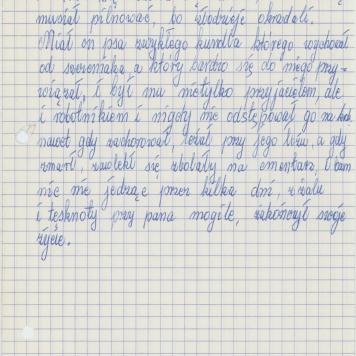 musiał pilnować, bo złodzieje okradali.
Miał on psa zwykłego kundla którego wychował
od szczeniaka a który bardzo się do niego przy=
wiązał, i był mu nietylko przyjacielem, ale
i robotnikiem i nigdy nie odstępował go na krok
nawet gdy zachorował, leżał przy jego łożu, a gdy
zmarł, zwolekł się zbolały na cmentarz, i tam
nic nie jedząc przez kilka dni, z żalu
i tęsknoty przy pana mogile, zakończył swoje
życie.